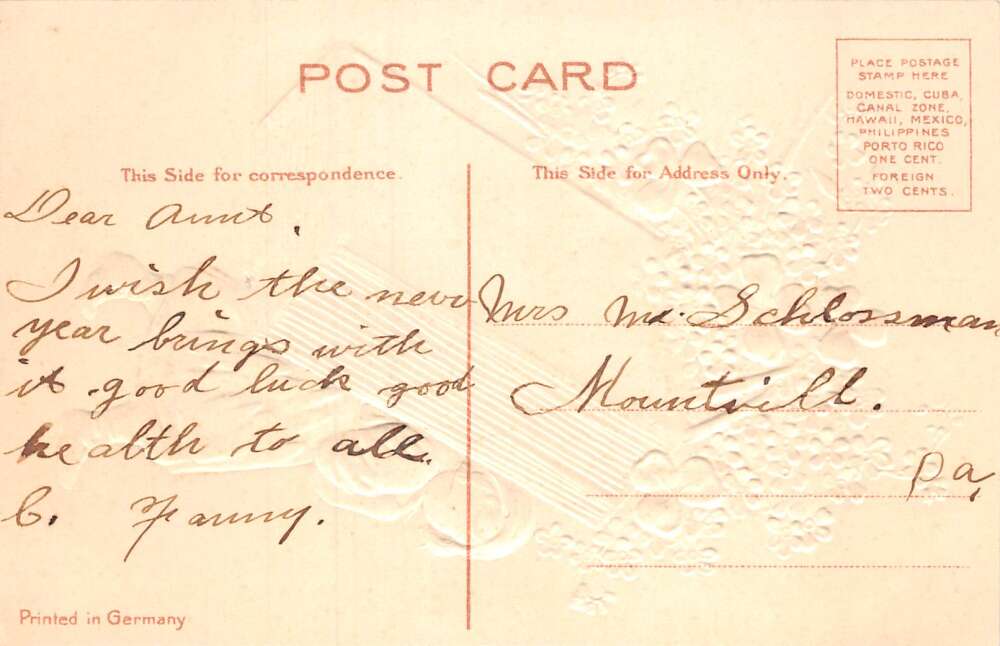 POST CARD
PLACE POSTAGE
STAMP HERE
DOMESTIC, CUBA,
CANAL ZONE,
HAWAII, MEXICO,
PHILIPPINES
PORTO RICO
ONE CENT.
FOREIGN
TWO CENTS.
This Side for correspondence.
Dear Aunt,
I wish the new
year brings with
it good luck good
health to all.
C. Fanny.
This Side for Address Only.
Mrs Schlossman
Mountvill.
Pa,
Printed in Germany